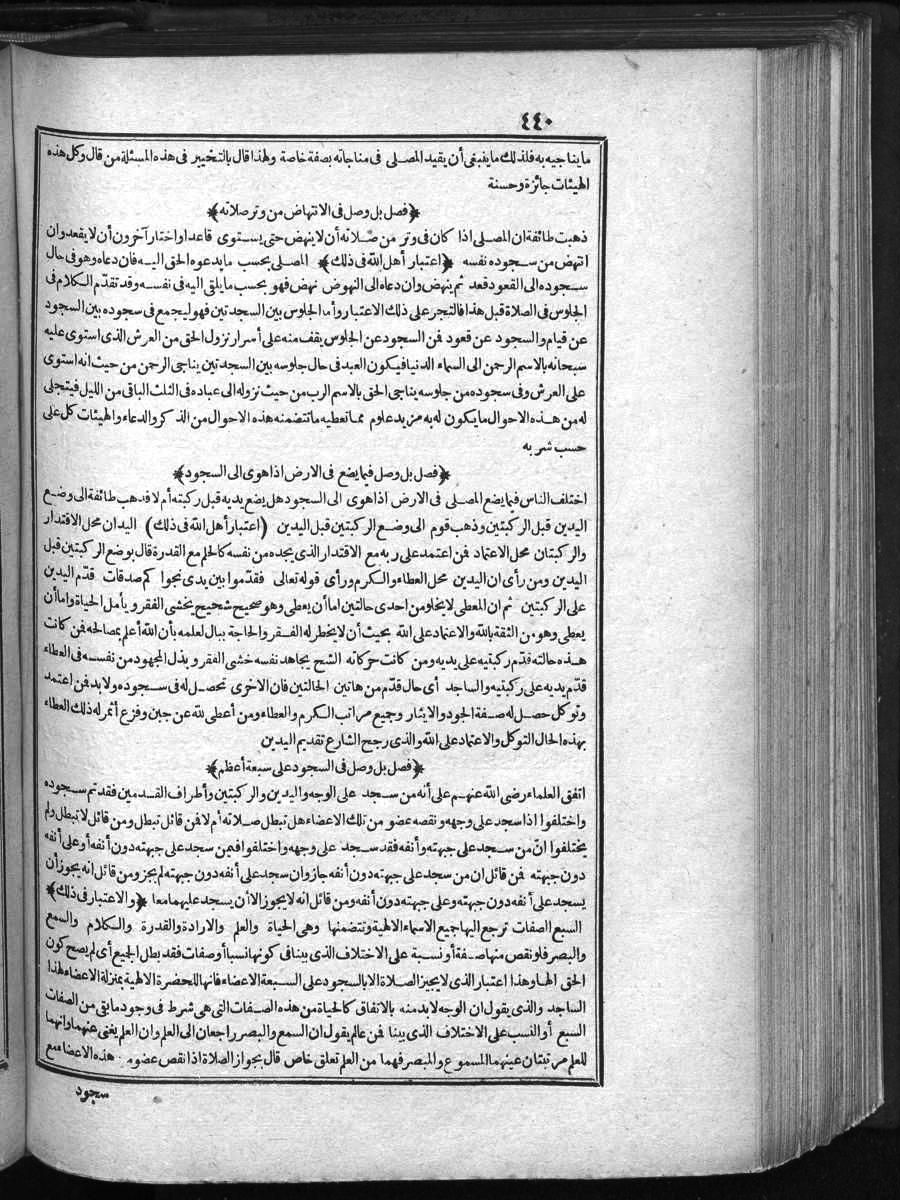 ٤٤٠
ما يناجيه به فلذلك ما ينبغى أن يقيد المصلى فى مناجاته بصفة خاصة ولهذا قال بالتخيير فى هذه المسئلة من قال وكل هذه
الهيئات جائزة وحسنة
﴿فصل بل وصل فى الانتهاض من وتر صلاته﴾
ذهبت طائفة ان المصلى اذا كان فى وتر من صلاته أن لا ينهض حتى يستوى قاعدا واختار آخرون أن لا يقعد وان
انتهض من سجوده نفسه ﴿اعتبار أهل الله فى ذلك﴾ المصلى بحسب ما يدعوه الحق اليه فان دعاه وهو فى حال
سجوده الى القعود قعد ثم ينهض وان دعاه الى النهوض نهض فهو بحسب ما يلقى اليه فى نفسه وقد تقدّم الكلام فى
الجلوس فى الصلاة قبل هذا فالتجر على ذلك الاعتبار وأما الجلوس بين السجدتين فهو ليجمع فى سجوده بين السجود
عن قيام والسجود عن قعود فمن السجود عن الجلوس يقف منه على أسرار نزول الحق من العرش الذى استوى عليه
سبحانه بالاسم الرحمن الى السماء الدنيا فيكون العبد فى حال جلوسه بين السجدتين يناجى الرحمن من حيث انه استوى
على العرش وفى سجوده من جلوسه يناجى الحق بالاسم الرب من حيث نزوله الى عباده فى الثلث الباقى من الليل فيتجلى
له من هذه الاحوال ما يكون له به مزيد علوم مما تعطيه ما تتضمنه هذه الاحوال من الذكر والدعاء والهيئات كل على
حسب شربه
﴿فصل بل وصل فيما يضع فى الارض اذا هوى الى السجود﴾
اختلف الناس فيما يضع المصلى فى الارض اذا هوى الى السجود هل يضع يديه قبل ركبتيه أم لا فذهب طائفة الى وضع
اليدين قبل الركبتين وذهب قوم الى وضع الركبتين قبل اليدين (اعتبار أهل الله فى ذلك) اليدان محل الاقتدار
والركبتان محل الاعتماد فمن اعتمد على ربه مع الاقتدار الذى يجده من نفسه كالحلم مع القدرة قال بوضع الركبتين قبل
اليدين ومن رأى ان اليدين محل العطاء والكرم ورأى قوله تعالى فقدّموا بين يدى نجواكم صدقات قدّم اليدين
على الركبتين ثم ان المعطى لا يخلو من احدى حالتين اما أن يعطى وهو صحيح شحيح يخشى الفقر ويأمل الحياة واما أن
يعطى وهو من الثقة بالله والاعتماد على الله بحيث أن لا يخطر له الفقر والحاجة ببال لعلمه بأن الله أعلم بمصالحه فمن كانت
هذه حالته قدّم ركبتيه على يديه ومن كانت حركاته الشح يجاهد نفسه خشى الفقر وبذل المجهود من نفسه فى العطاء
قدّم يديه على ركبتيه والساجد أى حال قدّم من هاتين الحالتين فان الاخرى تحصل له فى سجوده ولا بد فمن اعتمد
وتوكل حصل له صفة الجود والايثار وجميع مراتب الكرم والعطاء ومن أعطى لله عن جبن وفزع أثمر له ذلك العطاء
بهذه الحال التوكل والاعتماد على الله والذى رجح الشارع تقديم اليدين
﴿فصل بل وصل فى السجود على سبعة أعظم﴾
اتفق العلماء رضى الله عنهم على أنه من سجد على الوجه واليدين والركبتين وأطراف القدمين فقد تم سجوده
واختلفوا اذا سجد على وجهه ونقصه عضو من تلك الاعضاء هل تبطل صلاته أم لا فمن قائل تبطل ومن قائل لا تبطل ولم
يختلفوا انّ من سجد على جبهته وأنفه فقد سجد على وجهه واختلفوا فيمن سجد على جبهته دون أنفه أو على أنفه
دون جبهته فمن قائل ان من سجد على جبهته دون أنفه جاز وان سجد على أنفه دون جبهته لم يجز ومن قائل انه يجوز أن
يسجد على أنفه دون جبهته وعلى جبهته دون أنفه ومن قائل انه لا يجوز الا أن يسجد عليهما معا ﴿والاعتبار فى ذلك﴾
السبع الصفات ترجع اليها جميع الاسماء الالهية وتتضمنها وهى الحياة والعلم والارادة والقدرة والكلام والسمع
والبصر فلو نقص منها صفة أو نسبة على الاختلاف الذى بينا فى كونها نسبا أو صفات فقد بطل الجميع أى لم يصح كون
الحق الها وهذا اعتبار الذى لا يجيز الصلاة الا بالسجود على السبعة الاعضاء فانها للحضرة الالهية بمنزلة الاعضاء لهذا
الساجد والذى يقول ان الوجه لا بد منه بالاتفاق كالحياة من هذه الصفات التى هى شرط فى وجود ما بقى من الصفات
السبع أو النسب على الاختلاف الذى بينا فمن عالم يقول ان السمع والبصر راجعان الى العلم وان العلم يغنى عنهما وانهما
للعلم مرتبتان عينهما المسموع والمبصر فهما من العلم تعلق خاص قال بجواز الصلاة اذا نقص عضو من هذه الاعضاء مع
سجود